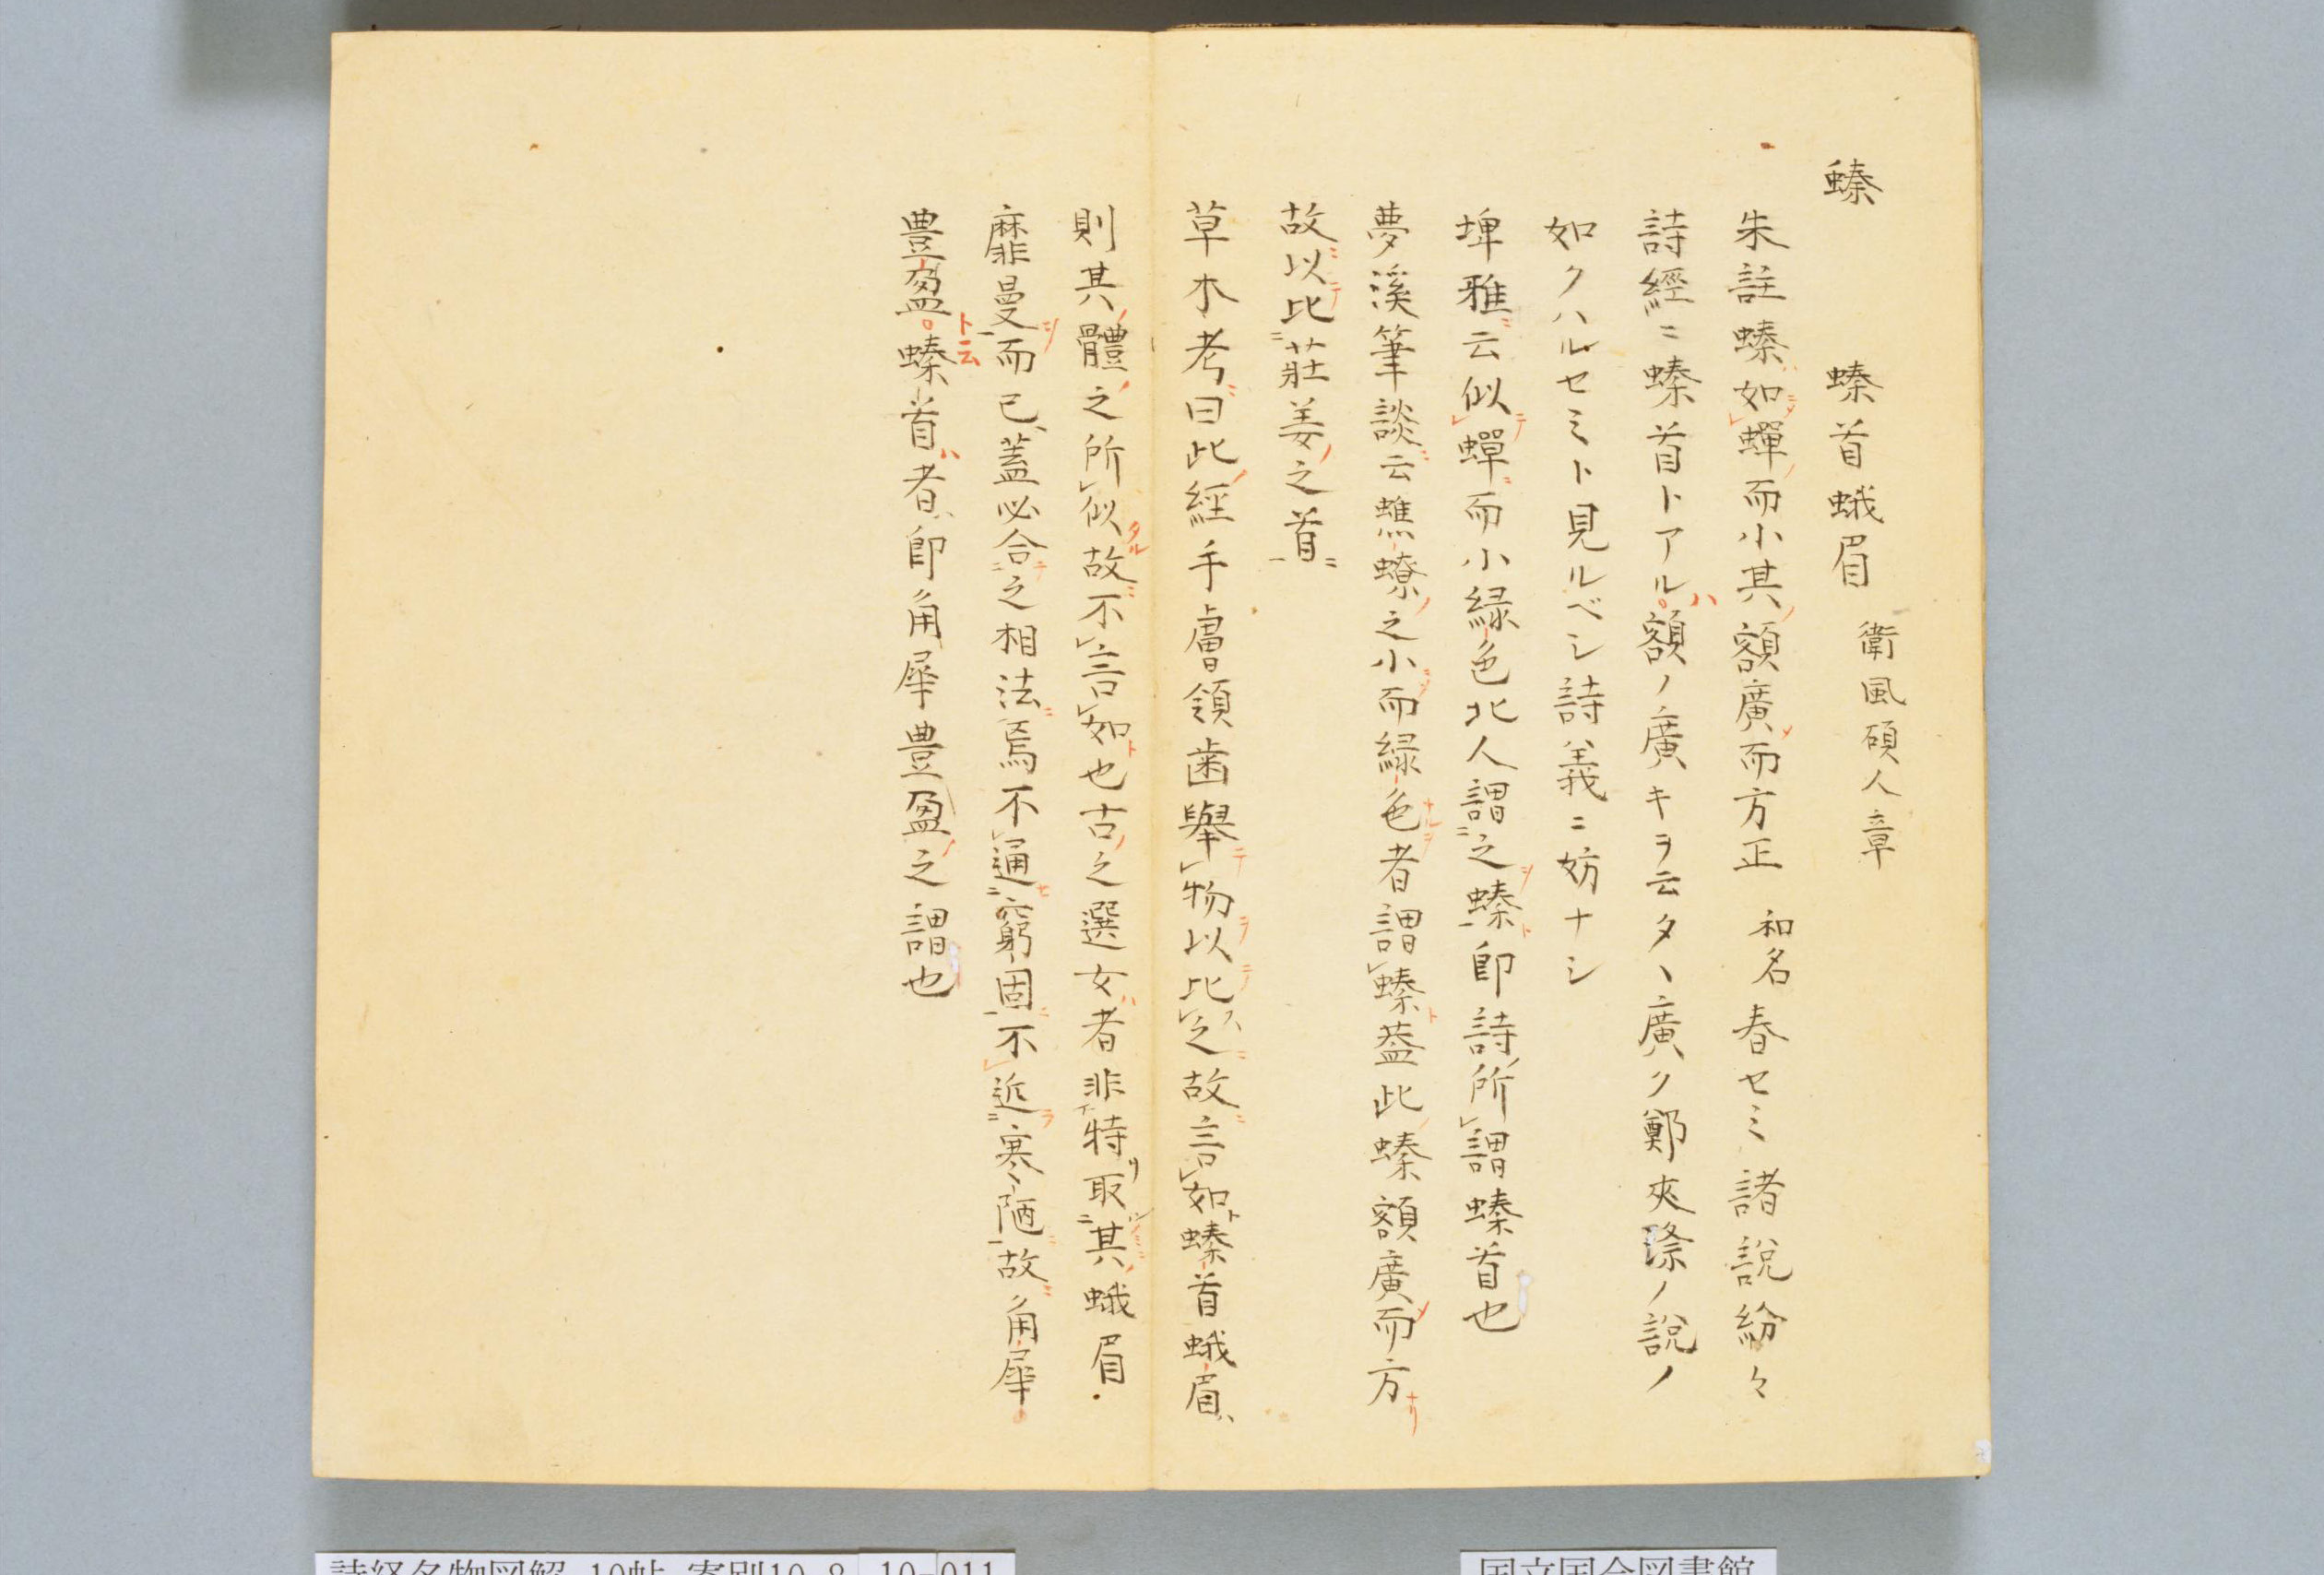 螓　螓首蛾眉　衛風碩人章
朱註螓如蟬而小其額廣而方正　和名春セミ諸說紛々
詩經ニ螓首トアルハ額ノ廣キヲ云タヽ廣ク鄭夾漈ノ說ノ
如クハルセミト見ルベシ詩義ニ妨ナシ
埤雅云似蟬而小緑色北人謂之螓即詩所謂螓首也
夢溪筆談云蟭蟟之小而緑色者謂螓葢此螓額廣而方
故以比莊姜之首
草木考曰此經手膚領歯舉物以比之故言如螓首蛾眉
則其體之所似故不言如也古之選女者非特取其蛾眉
靡曼而已蓋必合之相法焉不通窮固不近寒陋故角犀
豊盈螓首者即角犀豊盈之謂也
国立国会図書館